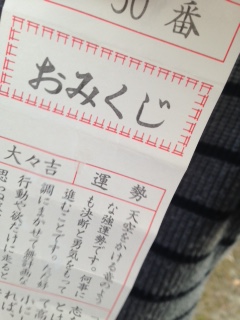 50番
おみくじ
大々吉
運勢
天空をかける竜のよう
な強運勢です。何事に
も決断と勇気をもって
進むことです。ただ好
調にまかせて
行動や欲だけに走ると